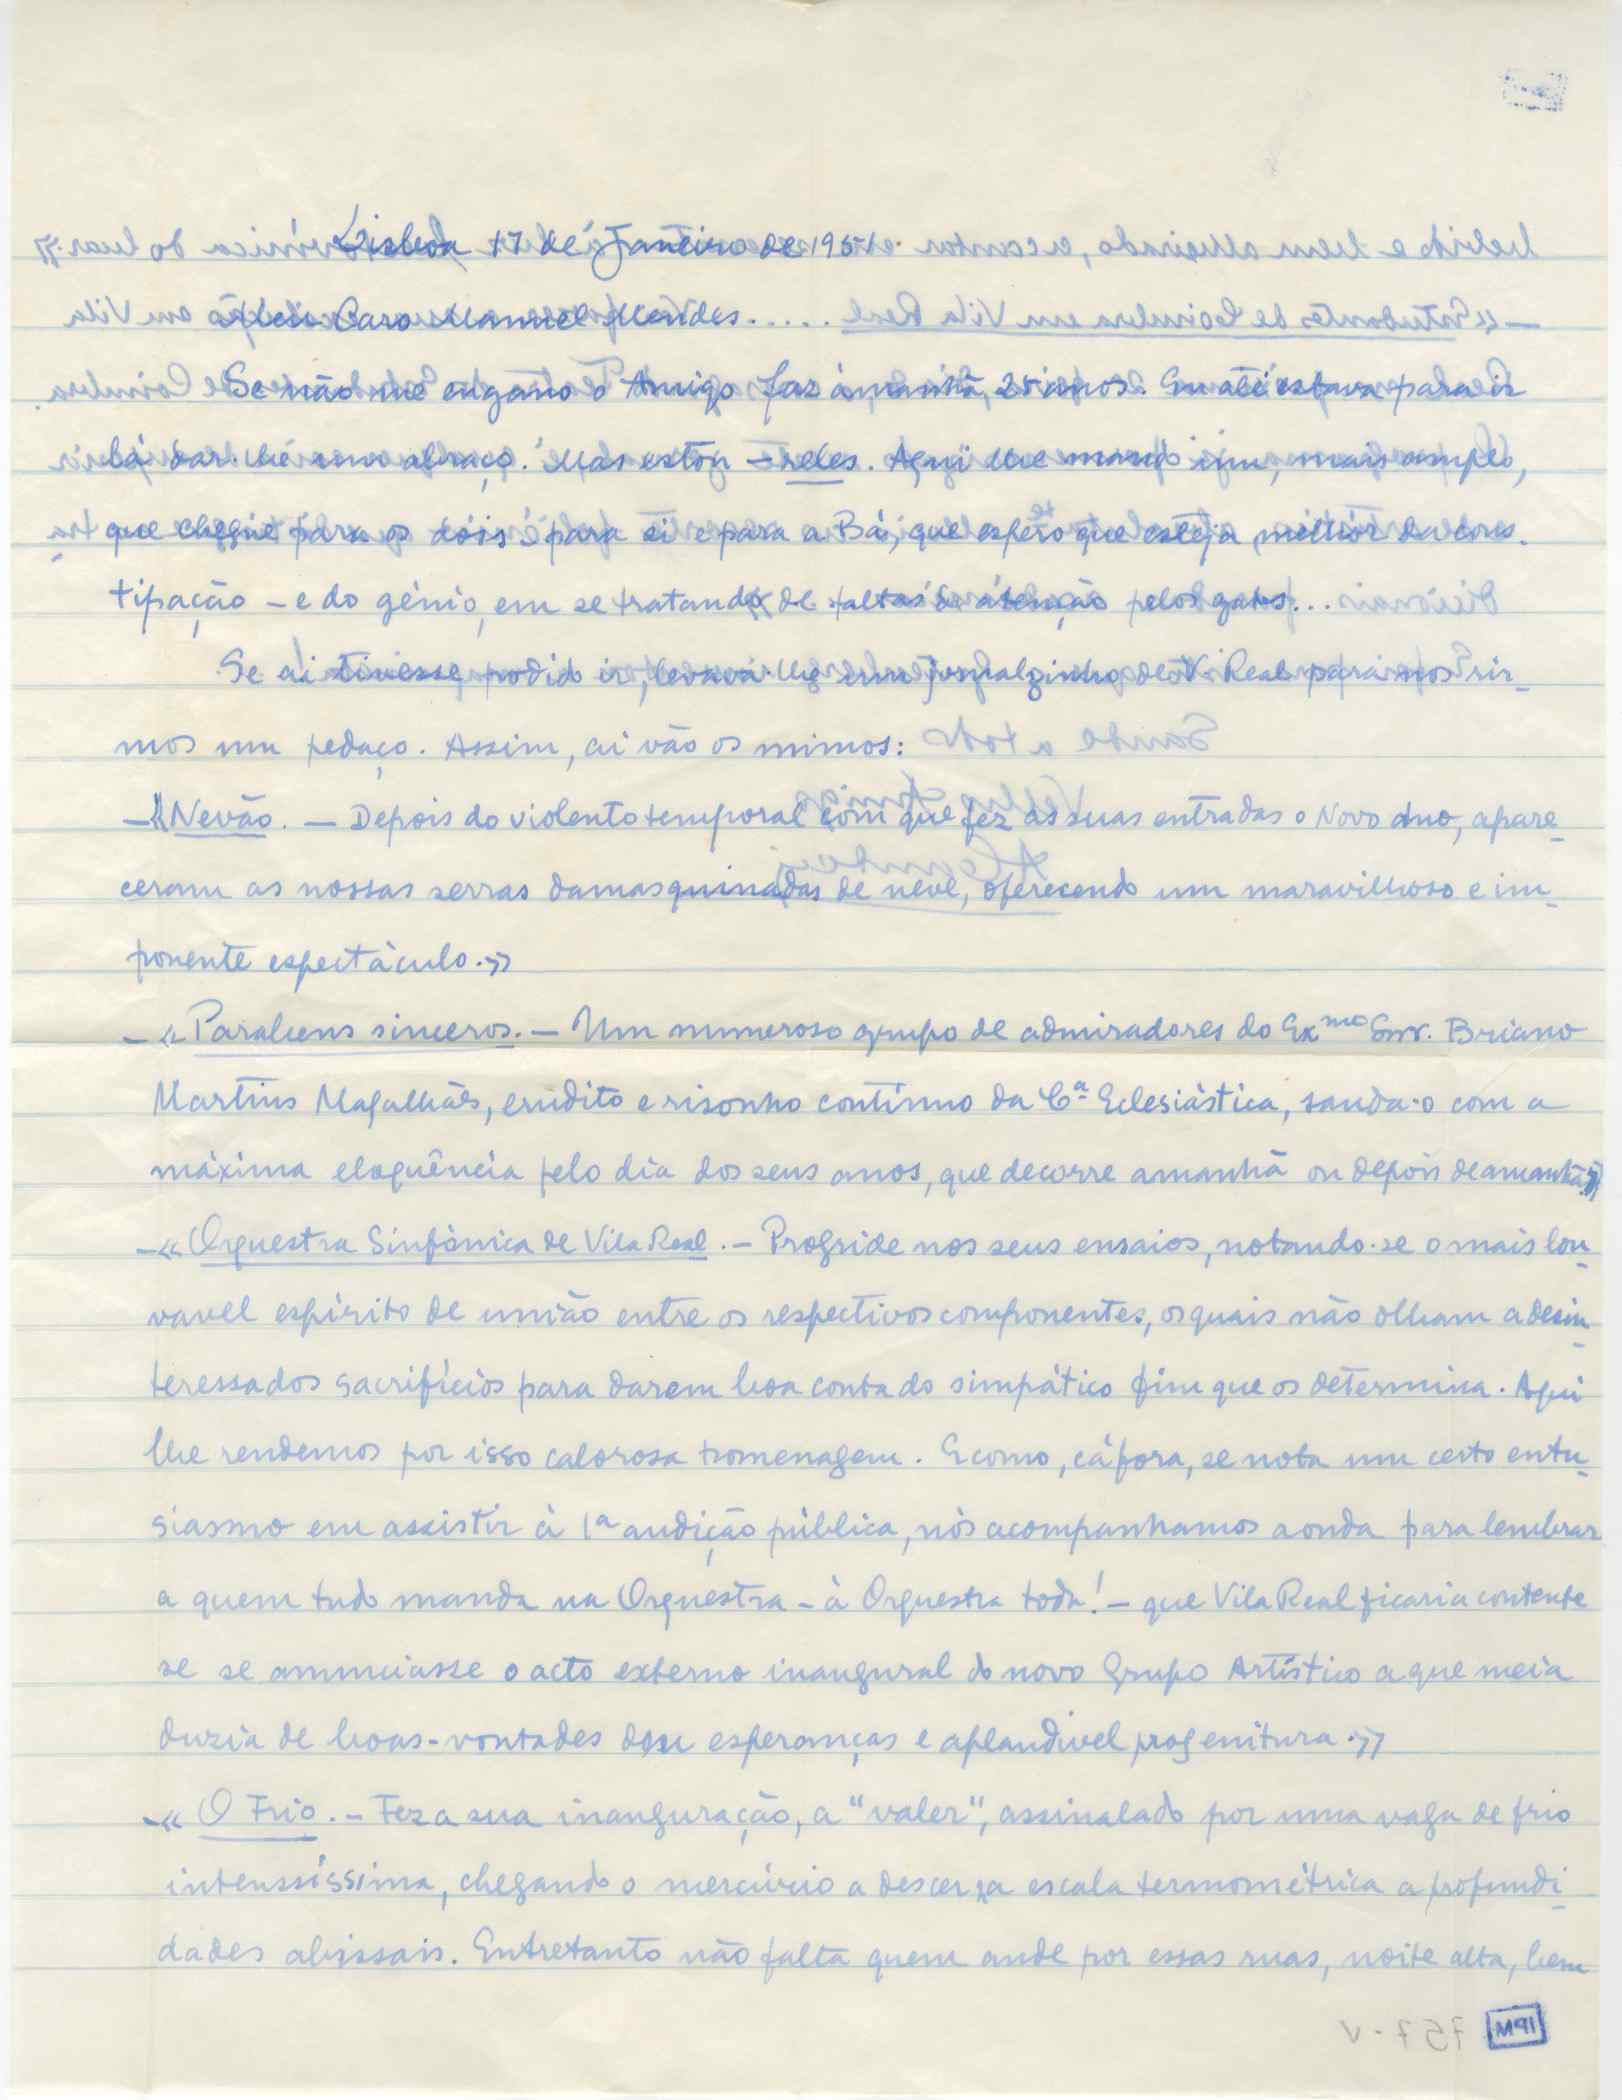 Lisboa 17 de Janeiro de 1951.
Meu Caro Manuel Mendes
Se não me engano o Amigo faz àmanhã, 25 anos. Eu até estava para ir
lá dar-lhe um abraço. Mas estou - reles. Aqui lhe mando um, mais amplo,
que chegue para os dois: para si e para a Bá, que espero que esteja melhor da cons-
tipação - e do génio, em se tratando de faltas de atenção pelos gatos...
Se aí tivesse podido ir, levava-lhe um jornalzinho de V. Real para nos rir-
mos um pedaço. Assim, aí vão os mimos:
- «Nevão. - Depois do violento temporal com que fez as suas entradas o Novo Ano, apare-
ceram as nossas serras damasquinadas de neve, oferecendo um maravilhoso e im-
ponente espectàculo.»
- «Parabens sinceros. - Um numeroso grupo de admiradores do Exmo Snr. Briano
Martins Magalhães, erudito e risonho contínuo da Cª Eclesiástica, sauda-o com a
máxima eloquência pelo dia dos seus anos, que decorre amanhã ou depois de amanhã.»
- «Orquestra Sinfónica de Vila Real. - Progride nos seus ensaios, notando-se o mais lou-
vavel espírito de união entre os respectivos componentes, os quais não olham a desin-
teressados sacrifícios para darem boa conta do simpático fim que os determina. Aqui
lhe rendemos por isso calorosa homenagem. E como, cá fora, se nota um certo entu-
siasmo em assistir à 1ª audição pública, nós acompanhamos a onda para lembrar
a quem tudo manda na Orquestra - à Orquestra toda! - que Vila Real ficaria contente
se se anunciasse o acto externo inaugural do novo Grupo Artístico a que meia
duzia de boas-vontades deu esperanças e aplaudivel progenitura.»
- «O Frio. - Fez a sua inauguração, a "valer", assinalado por uma vaga de frio
intenssíssima, chegando o mercúrio a descer na escala termométrica a profundi-
dades abissais. Entretanto não falta quem ande por essas ruas, noite alta, bem
757-V
IPM